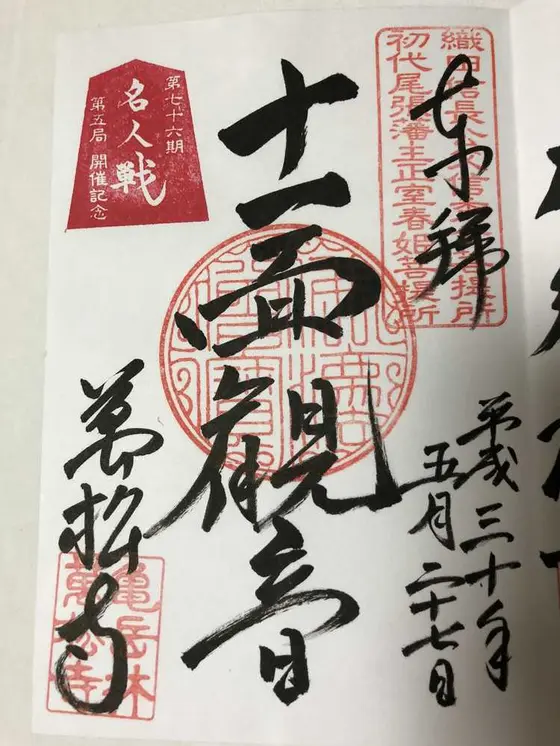 奉拝
織田信長公
初代尾張藩主正室春姫菩提所
平成三十年
五月二十七日
十一面観音
第七十六期
名人戦
第五局 開催記念
萬松寺
亀岳林
萬松寺